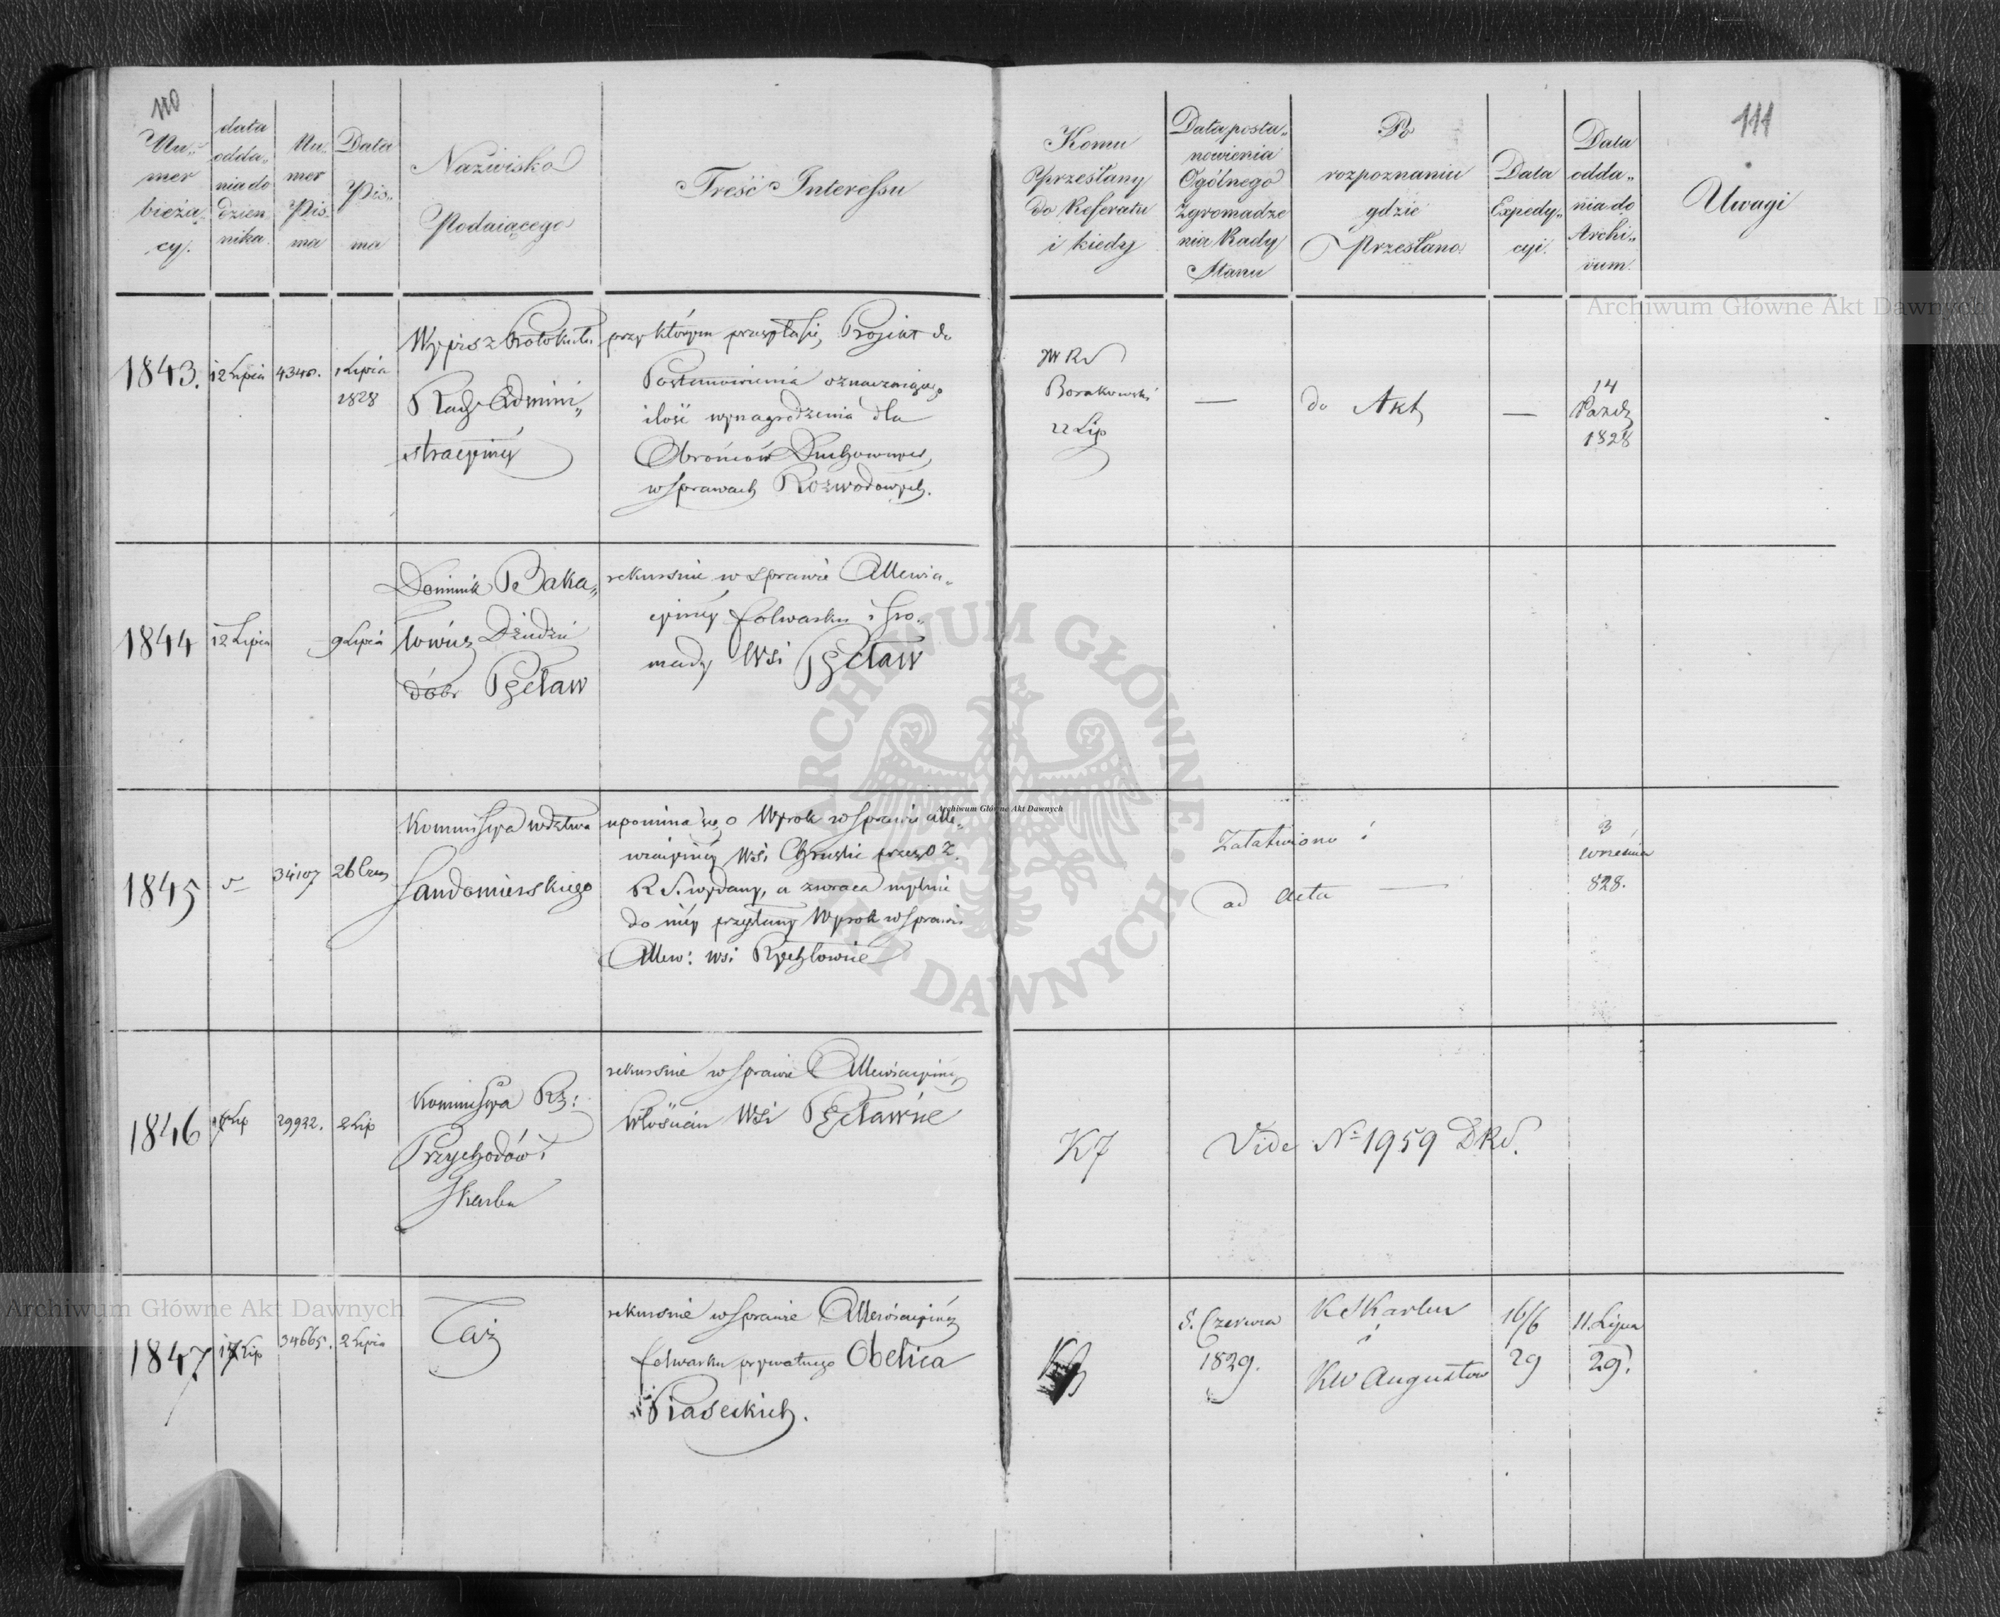 110
Nu-
mer
bieżą-
cy.
data
odda-
nia do
dzien
nika.
Nu-
mer
Pis
ma
Data
Pis-
ma
Nazwisko
Podaiącego
Treść Interessu
Komu
Przesłany
do Referatu
i kiedy
Data posta-
nowienia
Ogólnego
Zgromadze
nia Rady
Stanu
Po
rozpoznaniu
gdzie
Przesłano
Data
Expedy-
cyi.
Data
odda-
nia do
Archi-
vum.
111
Uwagi
1843.
12 Lipca
4340.
1 Lipca
1828
Wypis z Protokułu
Rady Admini-
stracyiney
przy którym przesyła się Projekt do
Postanowienia oznaczaiącego
ilość wynagrodzenia dla
Obrońców Duchownych,
w sprawach Rozwodowych.
JW RS
Borakowski
22 Lip
—
do Akt
—
14
Paźdz
1828
1844
12 Lipca
9 Lipca
Dominik Baka-
łowicz Dziedzic
dóbr Pęcław
rekursuie w sprawie Allewia-
cyiney folwarku i Gro-
mady Wsi Pęcław
1845
34107
26 Czer
Kommissya wdztwa
Sandomierskiego
upomina się o Wyrok w sprawie Alle-
wiacyiney Wsi Chruslic przez O Z.
R S. wydany, a zwraca mylnie
do niey przysłany Wyrok w sprawie
Allew: wsi Rychłowice
Załatwiono i
ad acta —
3
września
828.
1846
Lip
29922.
2 Lip
Kommissya Rz:
Przychodów i
Skarbu
rekursuie w sprawie Allewiacyiney
Włościan Wsi Pęcławice
K7
Vide No 1959 DRS.
1847
Lip
34665.
2 Lipca
Taż
rekursuie w sprawie Allewiacyiney
folwarku prywatnego Obelica
Piaseckich.
5. Czerwca
1829.
K S Karbu
i
KW Augustow
16/6
29
11. Lipca
29.
Archiwum Główne Akt Dawnych
Archiwum Główne Akt Dawnych
Archiwum Główne Akt Dawnych
ARCHIWUM GŁÓWNE AKT DAWNYCH